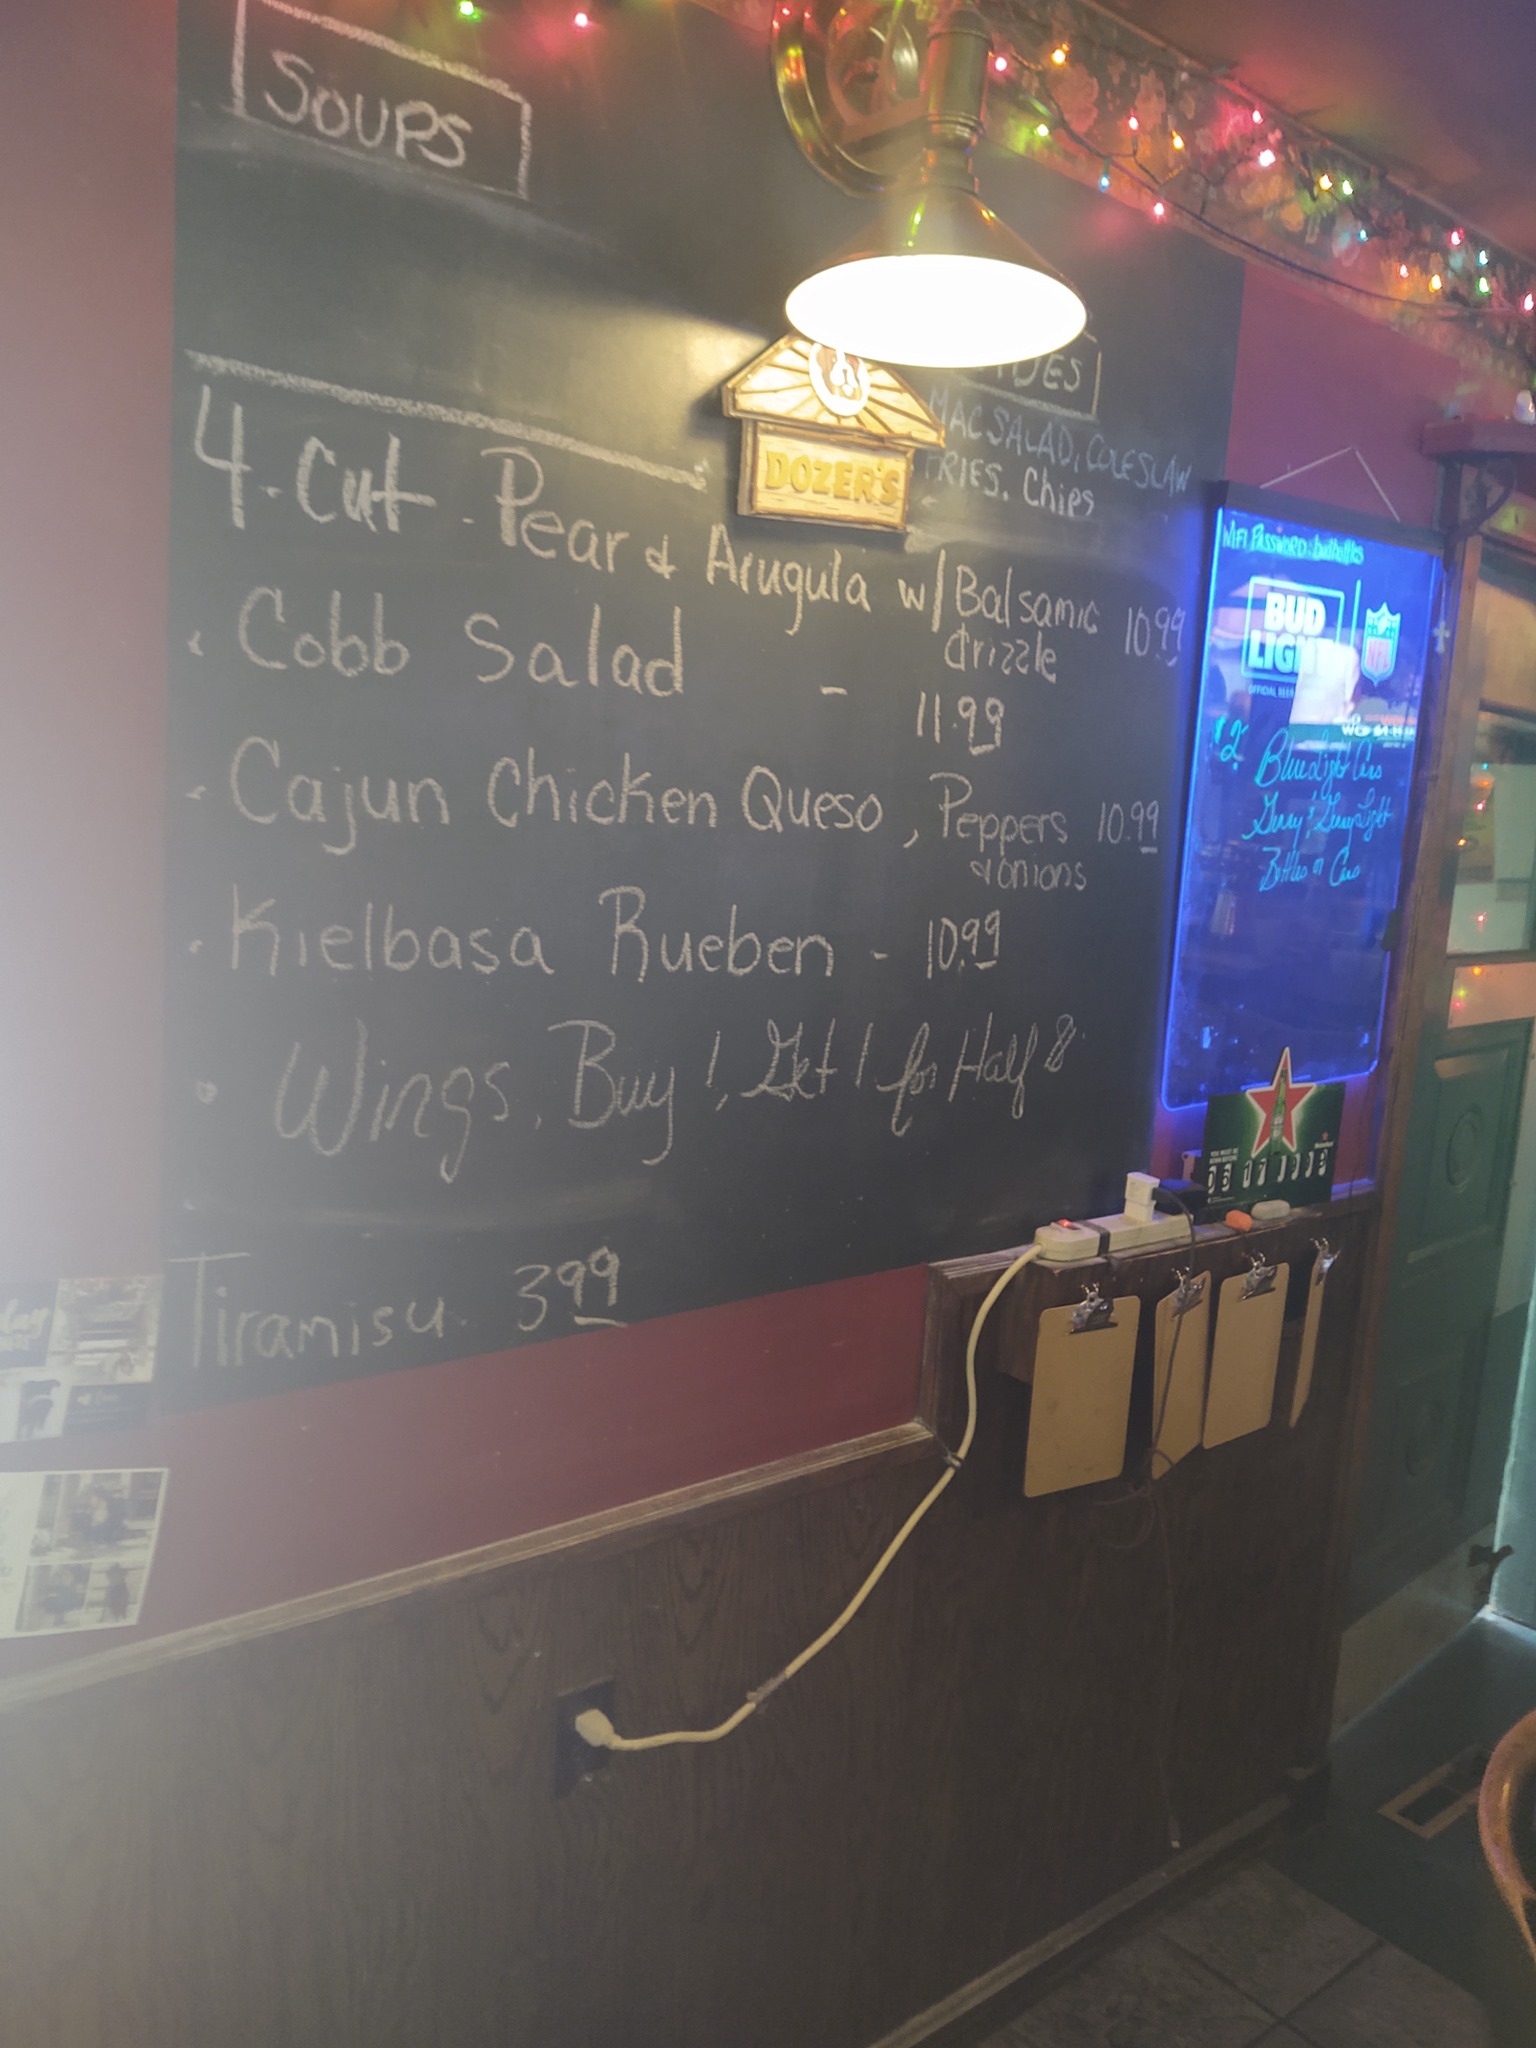 SOUPS
MAC SALAD, COLESLAW
FRIES, Chips
DOZER'S
4-Cut - Pear & Arugula w/ Balsamic drizzle 10.99
Cobb Salad - 11.99
Cajun Chicken Queso, Peppers & onions 10.99
Kielbasa Rueben - 10.99
Wings, Buy 1, Get 1 for Half
Tiramisu 3.99
WIFI PASSWORD:
BUD
LIGHT
NFL
$2 Blue Light Cans
Bottles or Cans
YOU MUST BE
BORN BEFORE